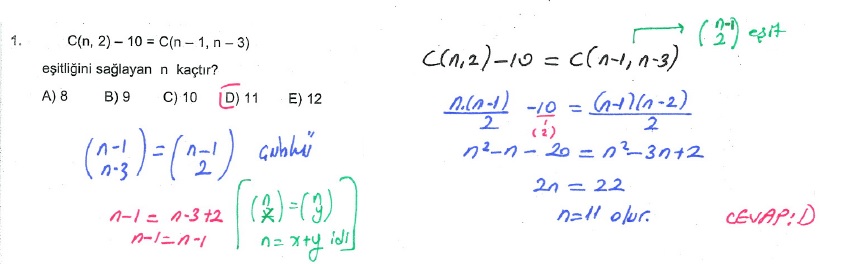 1. C(n, 2) – 10 = C(n – 1, n – 3)
eşitliğini sağlayan n kaçtır?
A) 8 B) 9 C) 10 D) 11 E) 12
(n-1 n-3) = (n-1 2) çünkü
n-1 = n-3+2
n-1 = n-1
(n x) = (n y)
n = x+y idi
C(n,2)-10 = C(n-1, n-3) → (n-1 2) eşit
n.(n-1)/2 -10/1 (2) = (n-1)(n-2)/2
n²-n-20 = n²-3n+2
2n = 22
n=11 olur.
CEVAP: D